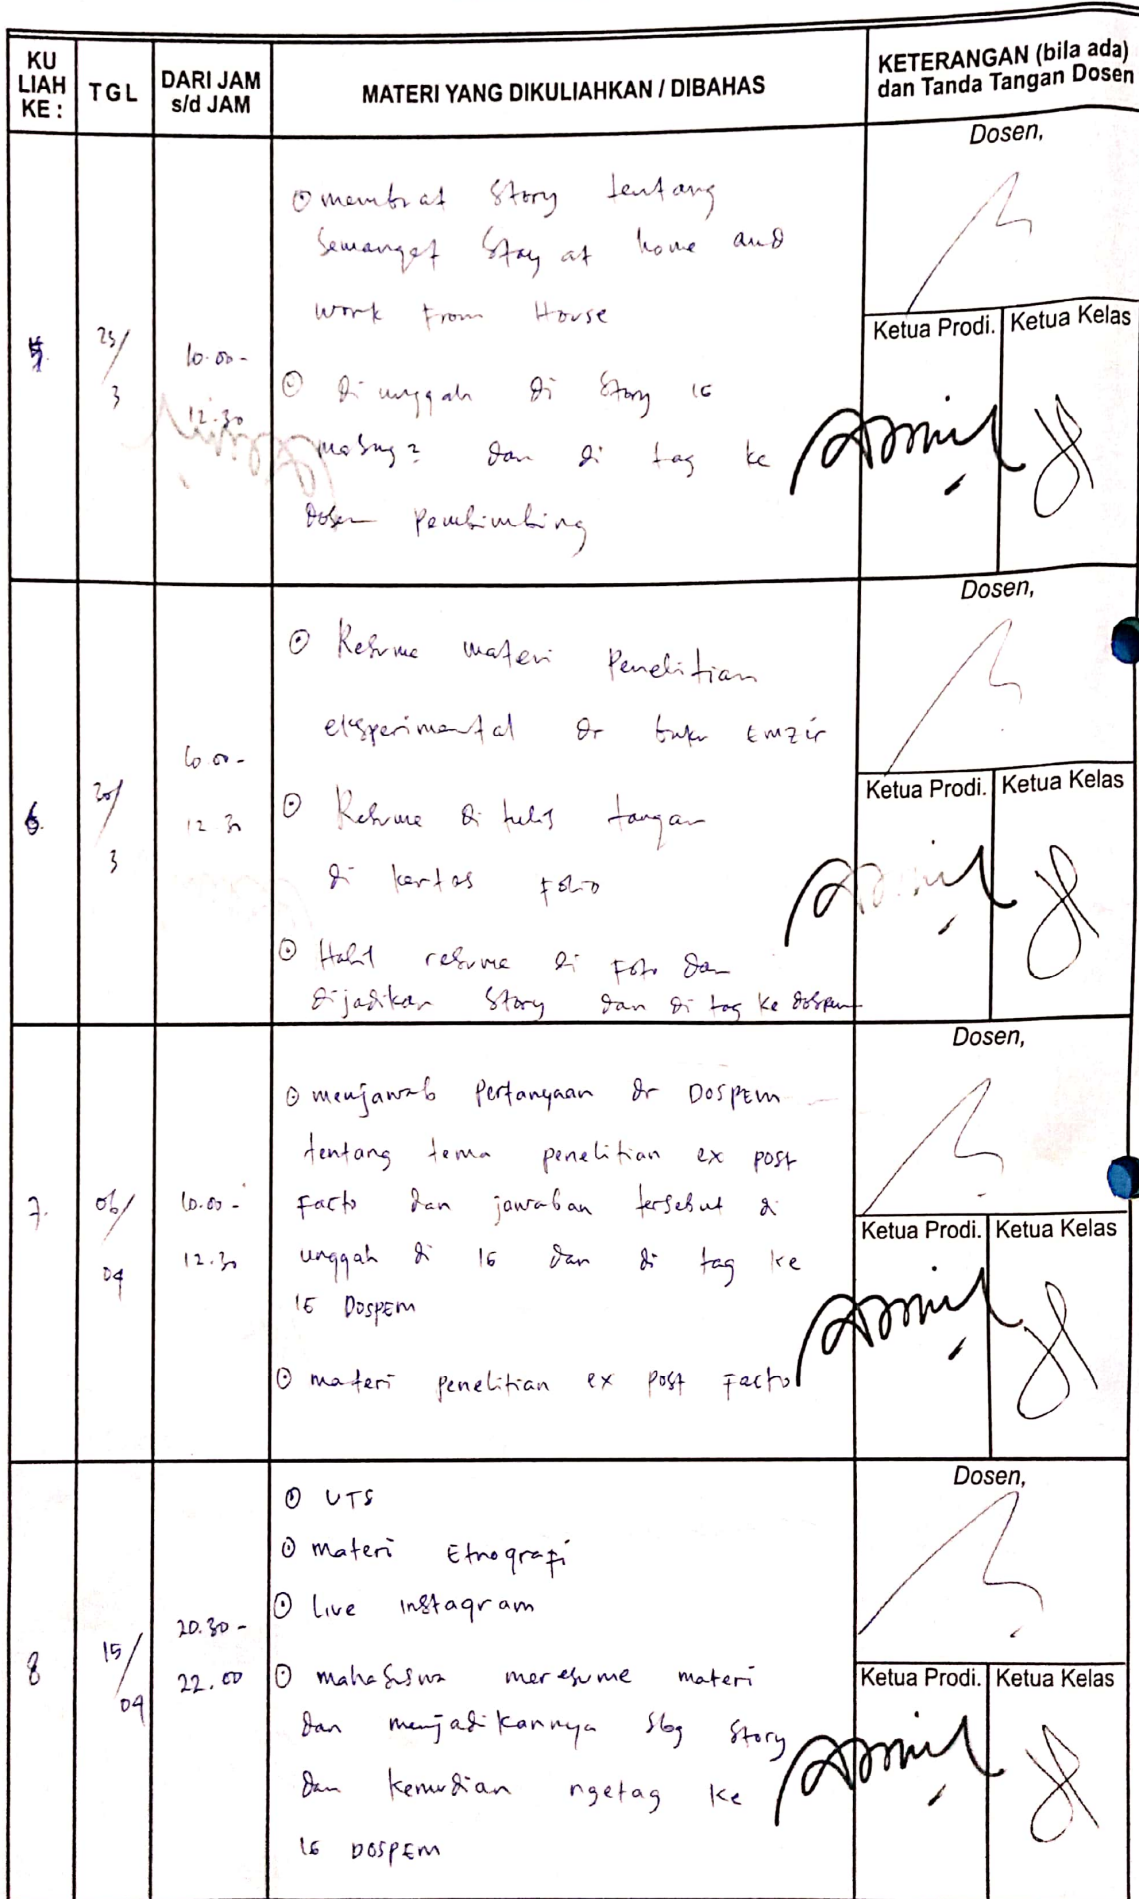 KU LIAH KE :
TGL
DARI JAM s/d JAM
MATERI YANG DIKULIAHKAN / DIBAHAS
KETERANGAN (bila ada) dan Tanda Tangan Dosen
5.
23/3
10.00 -
12.30
membuat Story tentang
Semangat Stay at home and
Work From House
di unggah di Story IG
masing2 dan di tag ke
Dosen Pembimbing
Dosen,
Ketua Prodi.
Ketua Kelas
6.
30/3
10.00 -
12.30
Resume materi Penelitian
eksperimental dr buku Emzir
Resume di tulis tangan
di kertas Folio
Hasil resume di Foto dan
dijadikan Story dan di tag ke dospem
Dosen,
Ketua Prodi.
Ketua Kelas
7.
06/04
10.00 -
12.30
menjawab Pertanyaan dr DOSPEM
tentang tema penelitian ex post
Facto dan jawaban tersebut di
unggah di IG dan di tag ke
IG DOSPEM
materi penelitian ex post Facto
Dosen,
Ketua Prodi.
Ketua Kelas
8
15/04
20.30 -
22.00
UTS
materi Etnografi
Live Instagram
mahasiswa meresume materi
dan menjadikannya sbg Story
dan kemudian ngetag ke
IG DOSPEM
Dosen,
Ketua Prodi.
Ketua Kelas